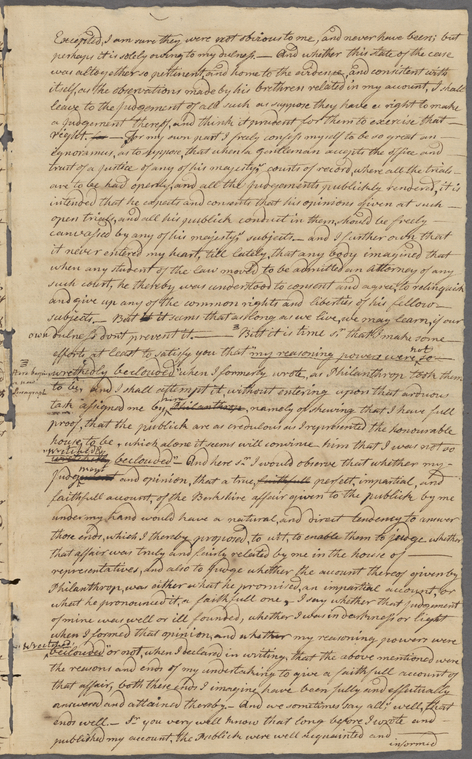 Excepted, I am sure they were not obvious to me, and never have been; but
perhaps it is solely owing to my dulness. — And whether this state of the case
was altogether so pertinent, and home to the evidence, and consistent with
itself, as the observations made by his brethren related in my account, I shall
leave to the judgement of all such as suppose they have a right to make
a judgement thereof, and think it prudent for them to exercise that
right. — For my own part I freely confess myself to be so great an
ignoramus, as to suppose, that when a gentleman accepts the office and
trust of a justice of any of his majesty's courts of record, where all the trials
are to be had openly, and all the judgements publickly rendered, it is
intended that he expects and consents that his opinions given at such
open trials, and all his publick conduct in them, should be freely
canvassed by any of his majesty's subjects. — and I further own that
it never entered my heart, till lately, that any body imagined that
when any student of the law moved to be admitted an attorney of any
such court, he thereby was understood to consent and agree, to relinquish
and give up any of the common rights and liberties of his fellow
subjects. — But it seems that as long as we live, we may learn, if our
own dulness dont prevent it. — But it is time Sr. that I make some
efforts at least to satisfy you that "my reasoning powers were not so
wretchedly beclouded" when I formerly wrote, as Philanthrop took them
Here begin
a new
paragraph
to be, and I shall attempt it, without entering upon that arduous
task assigned me by him Philanthrop, namely of shewing that I have full
proof, that the publick are as credulous as I represented the honourable
house, to be, which alone it seems will convince him that I was not so
wretchedly
beclouded". And here Sr. I would observe that whether my
judgment and opinion, that a true, faithfull perfect, impartial, and
faithfull account, of the Berkshire affair given to the publick by me
under my hand would have a natural, and direct tendency to answer
those ends, which I thereby proposed, to wit, to enable them to judge whether
that affair was truly and fairly related by me in the house of
representatives, and also to judge whether the account thereof given by
Philanthrop, was either what he promised, an impartial account, or
what he pronounced it, a faithfull one, I say whether that judgement
of mine was well or ill founded, whether I was in darkness or light
when I formed that opinion, and whether my reasoning powers were
"wretchedly
beclouded" or not, when I declared in writing, that the above mentioned were
the reasons and ends of my undertaking to give a faithfull account of
that affair, both these ends I imagine have been fully and effectually
answered and attained thereby. — And we sometimes say all's well, that
ends well. — Sr. you very well know that long before I wrote and
published my account, the Publick were well acquainted and
informed